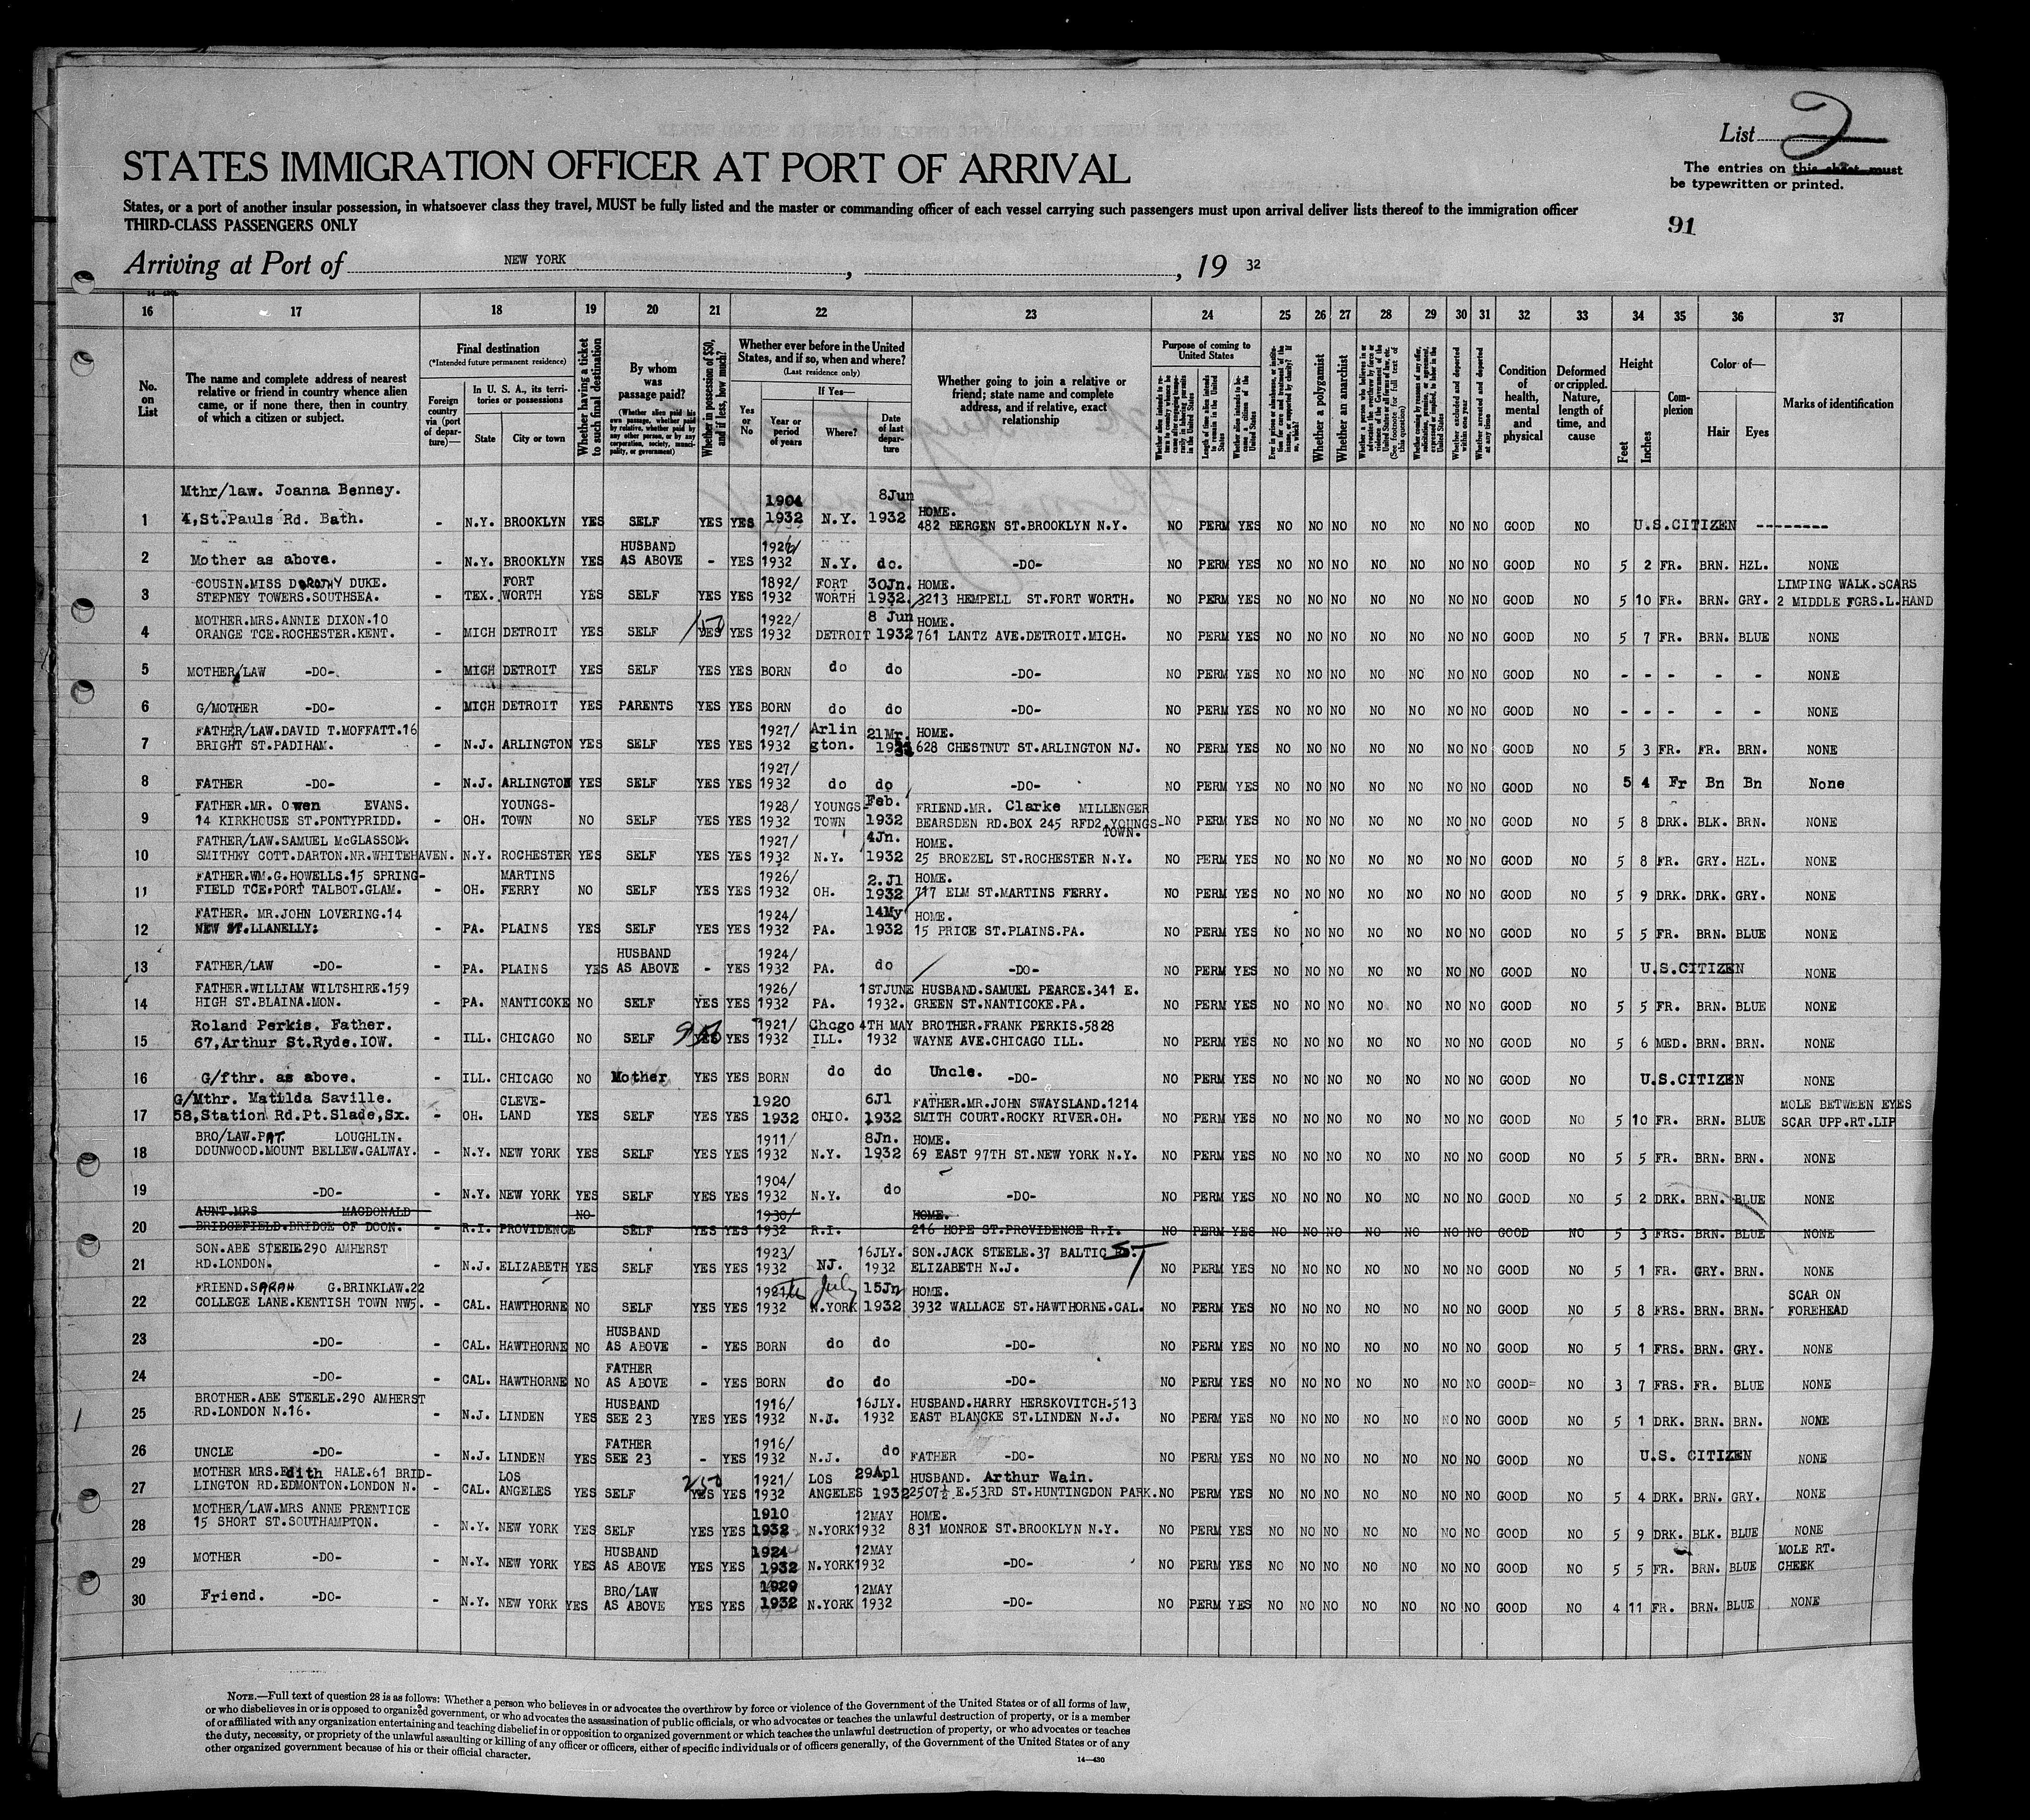 List 2
STATES IMMIGRATION OFFICER AT PORT OF ARRIVAL
The entries on this sheet must
be typewritten or printed.
States, or a port of another insular possession, in whatsoever class they travel, MUST be fully listed and the master or commanding officer of each vessel carrying such passengers must upon arrival deliver lists thereof to the immigration officer
THIRD-CLASS PASSENGERS ONLY
91
Arriving at Port of NEW YORK , , 19 32
16 17 18 19 20 21 22 23 24 25 26 27 28 29 30 31 32 33 34 35 36 37
No. on List
The name and complete address of nearest relative or friend in country whence alien came, or if none there, then in country of which a citizen or subject.
Final destination
(*Intended future permanent residence)
Foreign country via (port of departure)—
In U. S. A., its territories or possessions
State
City or town
Whether having a ticket to such final destination
By whom was passage paid?
(Whether alien paid his own passage, whether paid by relative, whether paid by any other person, or by any corporation, society, municipality, or government)
Whether in possession of $50, and if less, how much?
Whether ever before in the United States, and if so, when and where?
(Last residence only)
Yes or No
If Yes—
Year or period of years
Where?
Date of last departure
Whether going to join a relative or friend; state name and complete address, and if relative, exact relationship
Purpose of coming to United States
Length of time alien intends to remain in the United States
Whether alien intends to become a citizen of the United States
Whether a polygamist
Whether an anarchist
Condition of health, mental and physical
Deformed or crippled. Nature, length of time, and cause
Height
Feet
Inches
Complexion
Color of—
Hair
Eyes
Marks of identification
Mthr/law. Joanna Benney. 1904 8Jun HOME.
1 4,St.Pauls Rd. Bath. - N.Y. BROOKLYN YES SELF YES YES 1932 N.Y. 1932 482 BERGEN ST.BROOKLYN N.Y. NO PERM YES NO NO NO NO NO NO NO GOOD NO U.S.CITIZEN --------
HUSBAND 1926/
2 Mother as above. - N.Y. BROOKLYN YES AS ABOVE - YES 1932 N.Y. do. -DO- NO PERM YES NO NO NO NO NO NO NO GOOD NO 5 2 FR. BRN. HZL. NONE
COUSIN.MISS DOROTHY DUKE. FORT 1892/ FORT 30Jn. HOME. LIMPING WALK.SCARS
3 STEPNEY TOWERS.SOUTHSEA. - TEX. WORTH YES SELF YES YES 1932 WORTH 1932. 3213 HEMPELL ST.FORT WORTH. NO PERM YES NO NO NO NO NO NO NO GOOD NO 5 10 FR. BRN. GRY. 2 MIDDLE FGRS.L.HAND
MOTHER.MRS.ANNIE DIXON.10 150 1922/ 8 Jun HOME.
4 ORANGE TCE.ROCHESTER.KENT. - MICH DETROIT YES SELF YES YES 1932 DETROIT 1932 761 LANTZ AVE.DETROIT.MICH. NO PERM YES NO NO NO NO NO NO NO GOOD NO 5 7 FR. BRN. BLUE NONE
5 MOTHER/LAW -DO- - MICH DETROIT YES SELF YES YES BORN do do -DO- NO PERM YES NO NO NO NO NO NO NO GOOD NO - - - - - NONE
6 G/MOTHER -DO- - MICH DETROIT YES PARENTS YES YES BORN do do -DO- NO PERM YES NO NO NO NO NO NO NO GOOD NO - - - - - NONE
FATHER/LAW.DAVID T.MOFFATT.16 1927/ Arlin 21Mr. HOME.
7 BRIGHT ST.PADIHAM. - N.J. ARLINGTON YES SELF YES YES 1932 gton. 628 CHESTNUT ST.ARLINGTON NJ. NO PERM YES NO NO NO NO NO NO NO GOOD NO 5 3 FR. FR. BRN. NONE
1927/
8 FATHER -DO- - N.J. ARLINGTON YES SELF YES YES 1932 do do -DO- NO PERM YES NO NO NO NO NO NO NO GOOD NO 5 4 Fr Bn Bn None
FATHER.MR. Owen EVANS. YOUNGS- 1928/ YOUNGS- Feb. FRIEND.MR. Clarke MILLENGER
9 14 KIRKHOUSE ST.PONTYPRIDD. - OH. TOWN NO SELF YES YES 1932 TOWN 1932 BEARSDEN RD.BOX 245 RFD2.YOUNGS-TOWN. NO PERM YES NO NO NO NO NO NO NO GOOD NO 5 8 DRK. BLK. BRN. NONE
FATHER/LAW.SAMUEL McGLASSON. 1927/ 4Jn. HOME.
10 SMITHEY COTT.DARTON.NR.WHITEHAVEN. N.Y. ROCHESTER YES SELF YES YES 1932 N.Y. 1932 25 BROEZEL ST.ROCHESTER N.Y. NO PERM YES NO NO NO NO NO NO NO GOOD NO 5 8 FR. GRY. HZL. NONE
FATHER.WM.G.HOWELLS.15 SPRING- MARTINS 1926/ 2.Jl HOME.
11 FIELD TCE.PORT TALBOT.GLAM. - OH. FERRY NO SELF YES YES 1932 OH. 1932 717 ELM ST.MARTINS FERRY. NO PERM YES NO NO NO NO NO NO NO GOOD NO 5 9 DRK. DRK. GRY. NONE
FATHER. MR.JOHN LOVERING.14 1924/ 14My HOME.
12 NEW ST.LLANELLY: - PA. PLAINS YES SELF YES YES 1932 PA. 1932 15 PRICE ST.PLAINS.PA. NO PERM YES NO NO NO NO NO NO NO GOOD NO 5 5 FR. BRN. BLUE NONE
HUSBAND 1924/
13 FATHER/LAW -DO- - PA. PLAINS YES AS ABOVE - YES 1932 PA. do -DO- NO PERM YES NO NO NO NO NO NO NO GOOD NO U.S.CITIZEN NONE
FATHER.WILLIAM WILTSHIRE.159 1926/ 1STJUNE HUSBAND.SAMUEL PEARCE.341 E.
14 HIGH ST.BLAINA.MON. - PA. NANTICOKE NO SELF YES YES 1932 PA. 1932. GREEN ST.NANTICOKE.PA. NO PERM YES NO NO NO NO NO NO NO GOOD NO 5 5 FR. BRN. BLUE NONE
Roland Perkis. Father. 1921/ Chcgo 4TH MAY BROTHER.FRANK PERKIS.5828
15 67,Arthur St.Ryde.IOW. - ILL. CHICAGO NO SELF YES YES 1932 ILL. 1932 WAYNE AVE.CHICAGO ILL. NO PERM YES NO NO NO NO NO NO NO GOOD NO 5 6 MED. BRN. BRN. NONE
16 G/fthr. as above. - ILL. CHICAGO NO Mother YES YES BORN do do Uncle. -DO- NO PERM YES NO NO NO NO NO NO NO GOOD NO U.S.CITIZEN NONE
G/Mthr. Matilda Saville. CLEVE- 1920 6Jl FATHER.MR.JOHN SWAYSLAND.1214 MOLE BETWEEN EYES
17 58,Station Rd.Pt.Slade,Sx. - OH. LAND YES SELF YES YES 1932 OHIO. 1932 SMITH COURT.ROCKY RIVER.OH. NO PERM YES NO NO NO NO NO NO NO GOOD NO 5 10 FR. BRN. BLUE SCAR UPP.RT.LIP
BRO/LAW.PAT. LOUGHLIN. 1911/ 8Jn. HOME.
18 DOUNWOOD.MOUNT BELLEW.GALWAY. - N.Y. NEW YORK YES SELF YES YES 1932 N.Y. 1932 69 EAST 97TH ST.NEW YORK N.Y. NO PERM YES NO NO NO NO NO NO NO GOOD NO 5 5 FR. BRN. BRN. NONE
1904/
19 -DO- - N.Y. NEW YORK YES SELF YES YES 1932 N.Y. do -DO- NO PERM YES NO NO NO NO NO NO NO GOOD NO 5 2 DRK. BRN. BLUE NONE
AUNT.MRS MACDONALD NO 1930/ HOME.
20 BRIDGEFIELD.BRIDGE OF DOON. - R.I. PROVIDENCE SELF YES YES 1932 R.I. 216 HOPE ST.PROVIDENCE R.I. NO PERM YES NO NO NO NO NO NO NO GOOD NO 5 3 FRS. BRN. BLUE NONE
SON.ABE STEELE290 AMHERST 1923/ 16JLY. SON.JACK STEELE.37 BALTIC ST
21 RD.LONDON. - N.J. ELIZABETH YES SELF YES YES 1932 NJ. 1932 ELIZABETH N.J. NO PERM YES NO NO NO NO NO NO NO GOOD NO 5 1 FR. GRY. BRN. NONE
FRIEND.SARAH G.BRINKLAW.22 July 15Jn HOME. SCAR ON
22 COLLEGE LANE.KENTISH TOWN NW5. - CAL. HAWTHORNE NO SELF YES YES 1932 N.YORK 1932 3932 WALLACE ST.HAWTHORNE.CAL. NO PERM YES NO NO NO NO NO NO NO GOOD NO 5 8 FRS. BRN. BRN. FOREHEAD
HUSBAND
23 -DO- - CAL. HAWTHORNE NO AS ABOVE - YES BORN do do -DO- NO PERM YES NO NO NO NO NO NO NO GOOD NO 5 1 FRS. BRN. GRY. NONE
FATHER
24 -DO- - CAL. HAWTHORNE NO AS ABOVE - YES BORN do do -DO- NO PERM YES NO NO NO NO NO NO NO GOOD= NO 3 7 FRS. FR. BLUE NONE
BROTHER.ABE STEELE.290 AMHERST HUSBAND 1916/ 16JLY. HUSBAND.HARRY HERSKOVITCH.513
25 RD.LONDON N.16. - N.J. LINDEN YES SEE 23 YES YES 1932 N.J. 1932 EAST BLANCKE ST.LINDEN N.J. NO PERM YES NO NO NO NO NO NO NO GOOD NO 5 1 DRK. BRN. BRN. NONE
FATHER 1916/
26 UNCLE -DO- - N.J. LINDEN YES SEE 23 - YES 1932 N.J. do FATHER -DO- NO PERM YES NO NO NO NO NO NO NO GOOD NO U.S. CITIZEN NONE
MOTHER MRS.Edith HALE.61 BRID- LOS 250 1921/ LOS 29Apl HUSBAND. Arthur Wain.
27 LINGTON RD.EDMONTON.LONDON N. - CAL. ANGELES YES SELF YES YES 1932 ANGELES 1932 2507½ E.53RD ST.HUNTINGDON PARK. NO PERM YES NO NO NO NO NO NO NO GOOD NO 5 4 DRK. BRN. GRY. NONE
MOTHER/LAW.MRS ANNE PRENTICE 1910 12MAY HOME.
28 15 SHORT ST.SOUTHAMPTON. - N.Y. NEW YORK YES SELF YES YES 1932 N.YORK 1932 831 MONROE ST.BROOKLYN N.Y. NO PERM YES NO NO NO NO NO NO NO GOOD NO 5 9 DRK. BLK. BLUE NONE
HUSBAND 1924 12MAY MOLE RT.
29 MOTHER -DO- - N.Y. NEW YORK YES AS ABOVE YES YES 1932 N.YORK 1932 -DO- NO PERM YES NO NO NO NO NO NO NO GOOD NO 5 5 FR. BRN. BLUE CHEEK
BRO/LAW 1929 12MAY
30 Friend. -DO- - N.Y. NEW YORK YES AS ABOVE YES YES 1932 N.YORK 1932 -DO- NO PERM YES NO NO NO NO NO NO NO GOOD NO 4 11 FR. BRN. BLUE NONE
NOTE.—Full text of question 28 is as follows: Whether a person who believes in or advocates the overthrow by force or violence of the Government of the United States or of all forms of law,
or who disbelieves in or is opposed to organized government, or who advocates the assassination of public officials, or who advocates or teaches the unlawful destruction of property, or is a member
of or affiliated with any organization entertaining and teaching disbelief in or opposition to organized government or which teaches the unlawful destruction of property, or who advocates or teaches
the duty, necessity, or propriety of the unlawful assaulting or killing of any officer or officers, either of specific individuals or of officers generally, of the Government of the United States or of any
other organized government because of his or their official character.
14—430